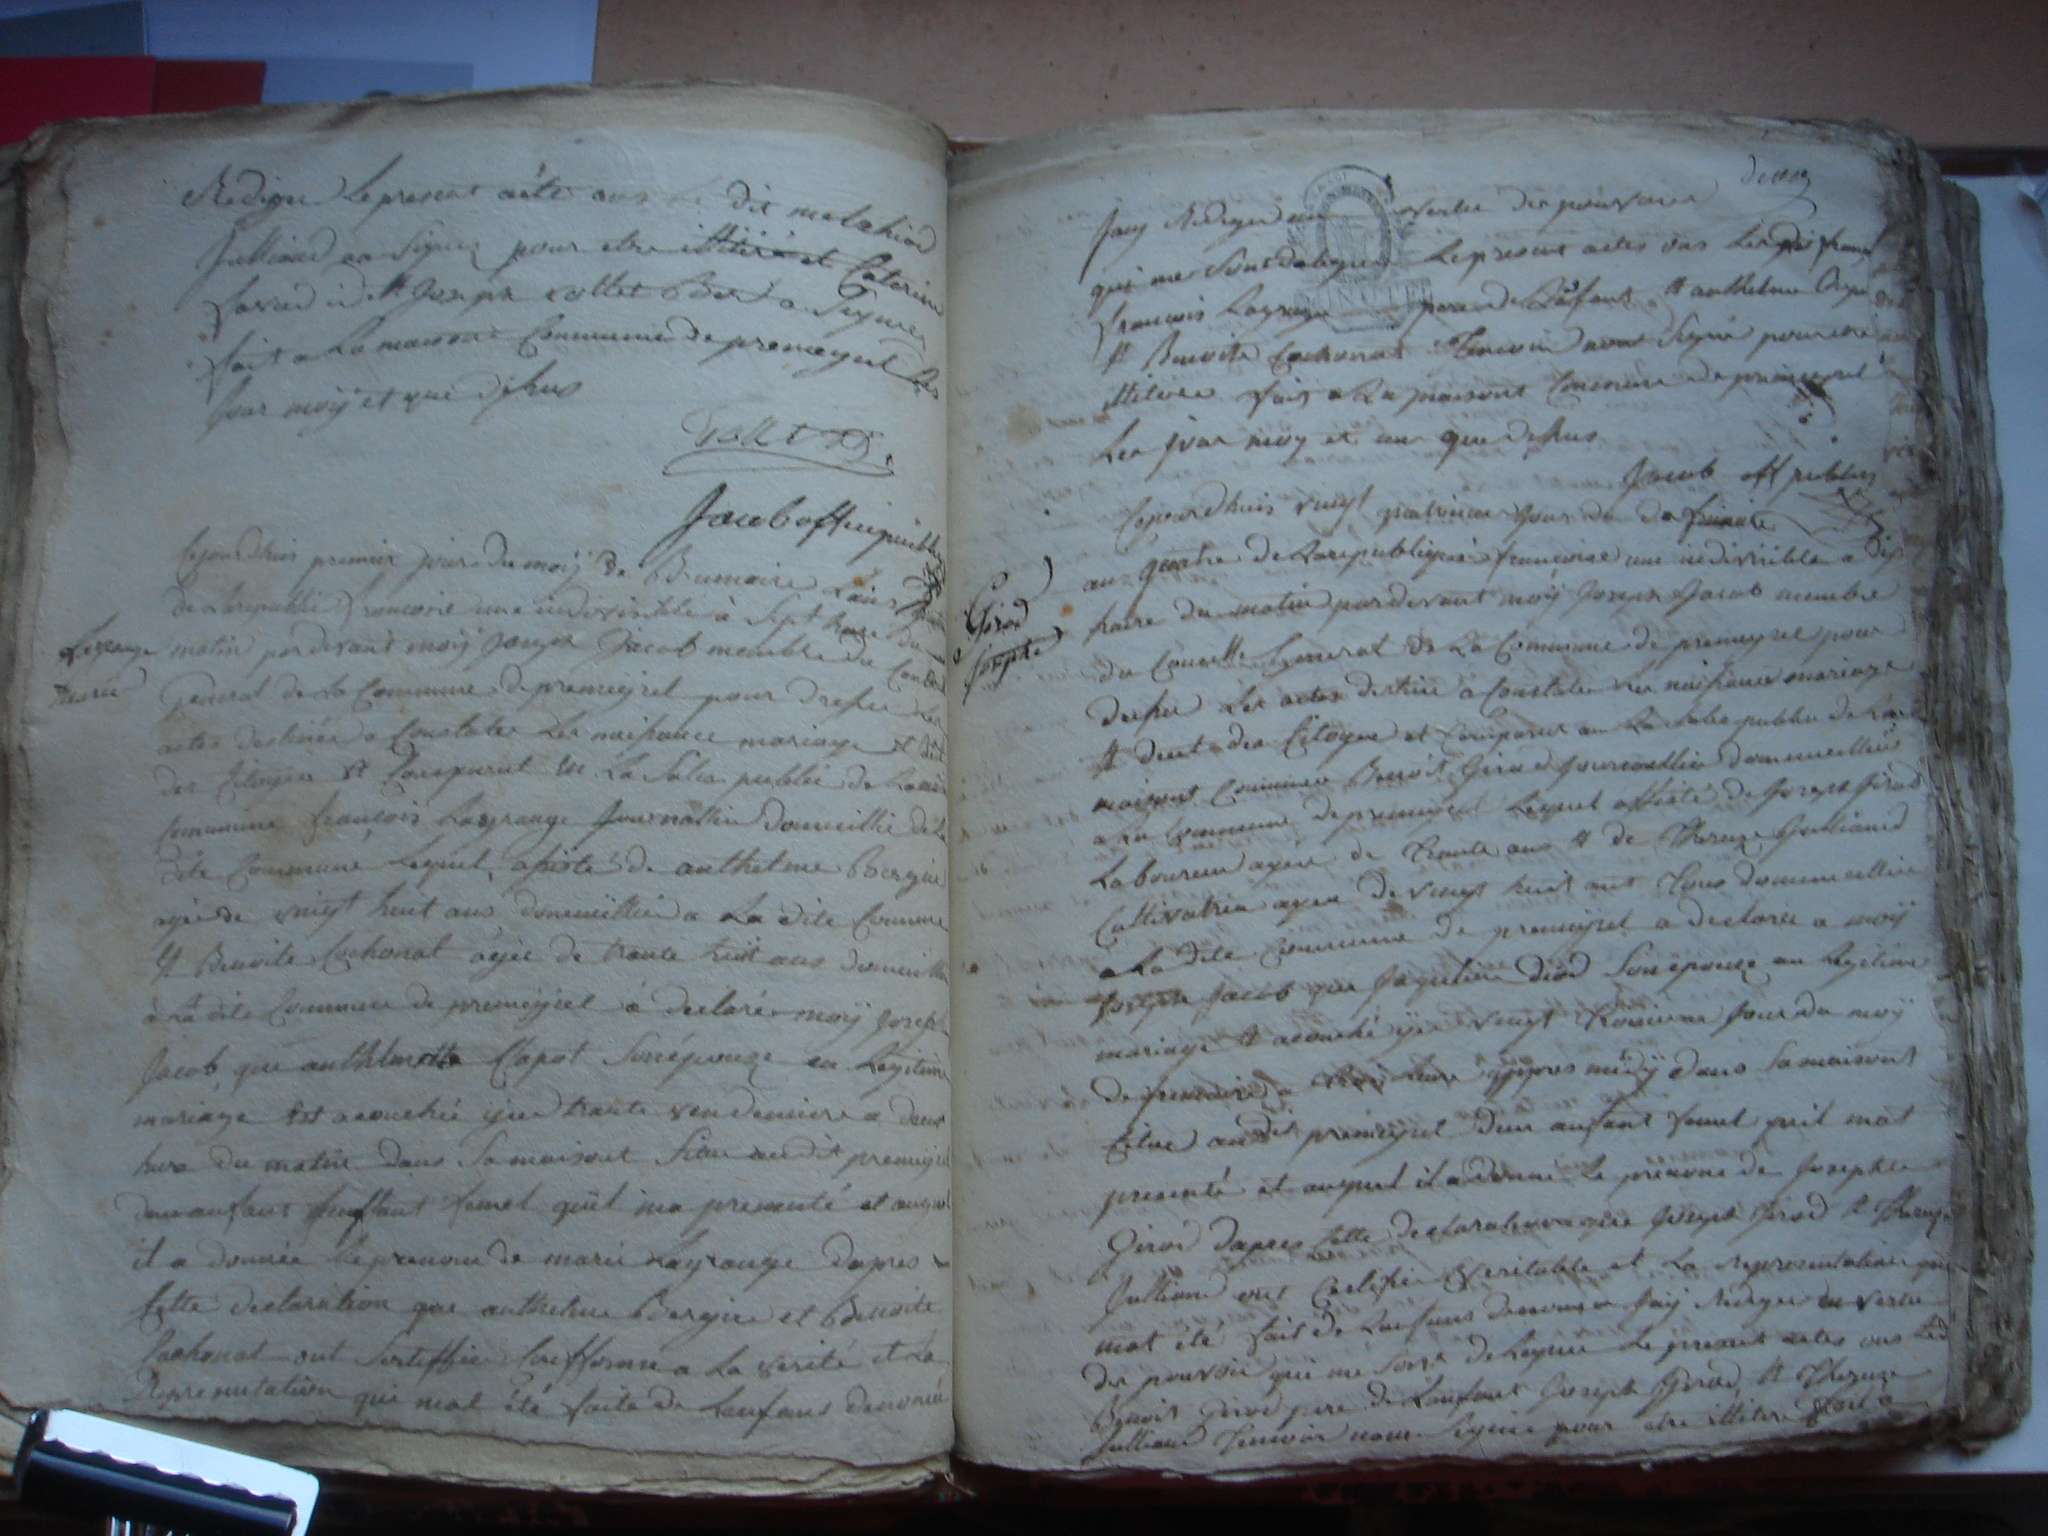 Rediger le present acte ans le dit melchiod
Julliand na signer pour etre illiterat Caterine
favard id et Joseph vollet Bad a Signer
fait a la maisont Commune de premeyzel les
jour moÿ et que desus
Vollet
Jacob officie public
Cejourdhui premier jour du moÿ de Brumaire Lan
de la republi francoise une indivisible à Sept heure du
Lagrange
marie
matin pardevant moÿ Joseph Jacob membre du Conseil
General de la Commune de premeÿzel pour dresser les
actes destinée a Constater les naissance mariage et décé
des Citoyen et Comparut en la Salle public de la mais
Commune françois Lagrange Journallie domeillié de la
dite Commune Lequel assisté de anthelme Bergie
agée de vingt huit ans domeillié a la dite Commune
et Benoite Cochonat agée de trante huit ans domeillié
à la dite Commune de premeÿzel à declaré a moÿ Joseph
Jacob que anthelmette Capot Son épouze en Legitime
mariage est acouchée yer trante vendemiere a deux
hure du matin dans Sa maisont Situe audit premeyzel
dun anfant femel quil ma presenté et auquel
il a donnée le prenom de marie Lagrange dapres
Cette declaration que anthelme Bergie et Benoite
Cochonat ont Sertiffie Confforme a la verité et la
Representation qui mat été faite de Lanfans denomé
deux
Jaÿ Rediger en vertu des pouvoir
qui me sont delegue Le present actes ans les dis
francois Lagrange pere de Lanfant et anthelme Bergie
et Benoite Cochonat Temoin nont Signé pour etre
illitere fait a la maisont Commune de premeyzel
Les jour moÿ et an que desus
Jacob off public
Cejourdhuis vingt quatrieme jour du de frimaire
Girod
Josephe
an quatre de la republique francoise une indivisible a dix
heure du matin pardevant moÿ Joseph Jacob membre
du Conselle General de la Commune de premeyzel pour
dresser Les actes destiné a Constater les naissance mariage
et deces des Citoyen et Comparu en la Salle public de la
maisont Commune Benoit Girod journallie domeillié
a la Commune de premeyzel Lequel assisté de Joseph Girod
Laboureur agée de trante ans et de Thereze Julliand
Cultivatrice agee de vingt huit ans tous domeillié
a la dite Commune de premeÿzel a declarée a moÿ
Joseph Jacob que Jaqueline diod Son épouze en Legitime
mariage et acouché yer vingt troisieme jour du moÿ
de frimaire a trois heure appres midÿ dans Sa maisont
Citue audit premeyzel dun anfant femel quil mat
presenté et auquel il a donné Le prenom de Josephe
Girod dapres cette declaration que Joseph Girod et Thereze
Julliand ont Certifie veritable et la representation qui
mat été fait de Lanfans denomer Jaÿ Rediger en vertu
des pouvoir qui me sont delegue Le present actes ans Led
Benoit Girod pere de Lanfant Joseph Girod et Thereze
Julliand Temoin nont Signée pour etre illitere fait a